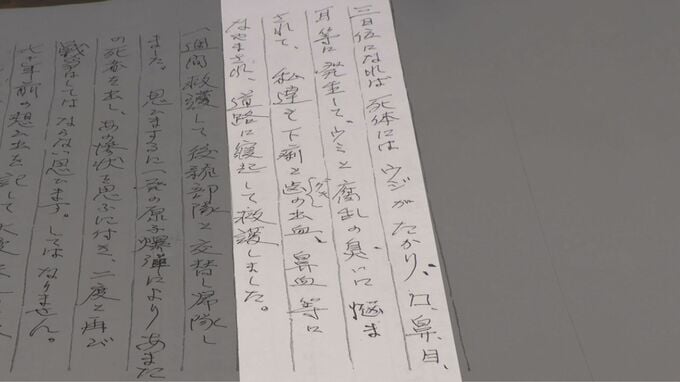 三日位になれば死体にはウジがたかり、口、鼻、目、
耳等に発生して、ウミと腐乱の臭いに悩ま
されて、私達も下痢と歯の出血、鼻血等に
なやまされ、道路に寝起して救護しました。
一週間救護して後続部隊と交替し帰隊し
ました。思いまするに一発の原子爆弾によりあまた
の死者を出し、あの惨状を思ふに付き、二度と再び
戦争はしてはならないと思ひます。してはなりません。
七十年前の想い出を記して